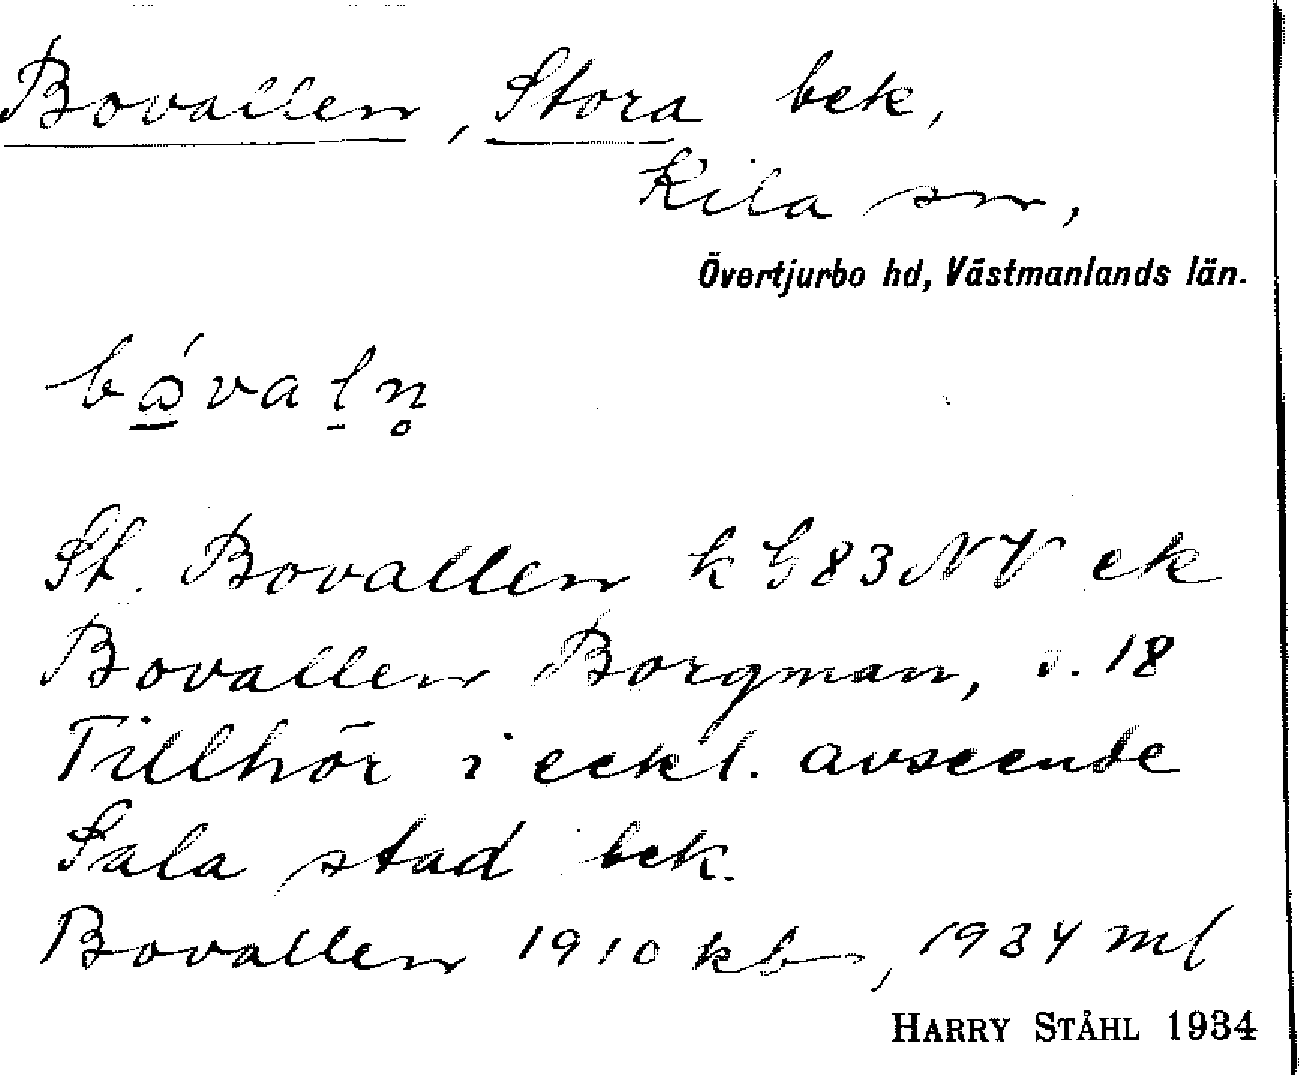 Bovallen, Stora bek,
Kila sn,
Övertjurbo hd, Västmanlands län.
St. Bovallen k G 83 NV ek
Bovallen Borgman, s. 18
Tillhör i eckl. avseende
Sala stad bek.
Bovallen 1910 kb, 1934 ml
HARRY STÅHL 1934